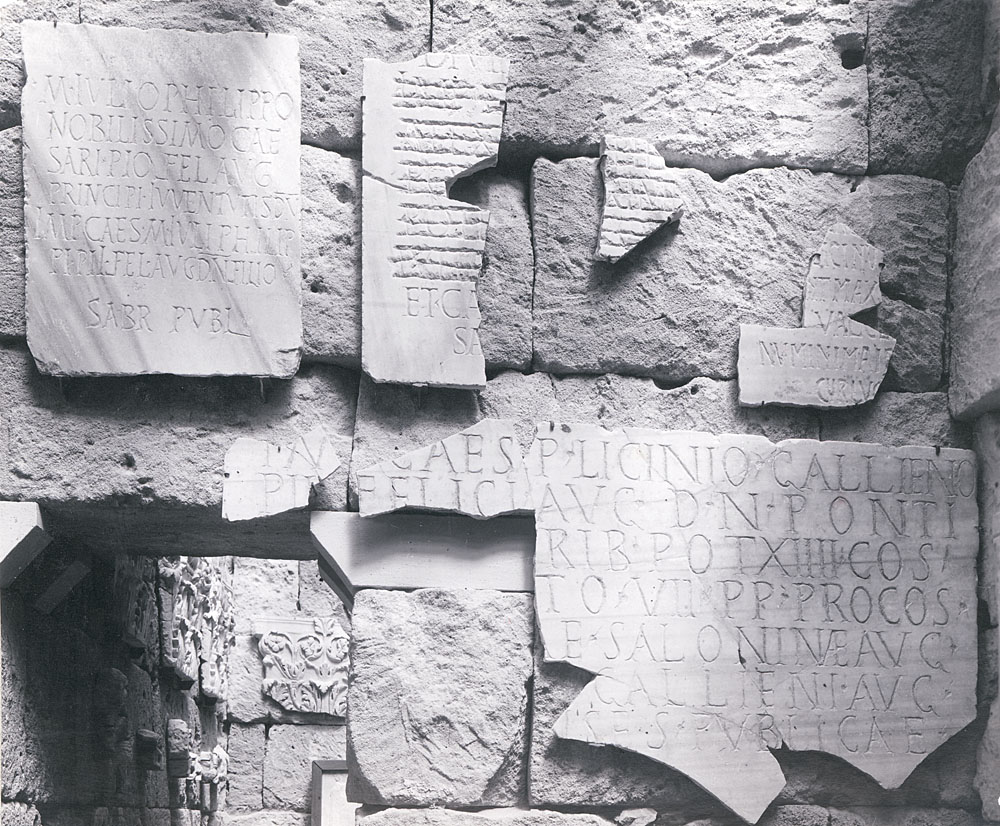 M·IVLIO PHILIPPO
NOBILISSIMO CAE
SARI·PIO·FEL AVG
PRINCIPI·IVVENTVTIS·DV
IMP·CAES·M·IVLI·PHILIP
PI·PII·FEL·AVG·D·N·FILIO
SABR PVBL
ET·CA
SA
NVMINI·MPI
CAES·P·LICINIO·GALLIENO
PI FELICI AVG·D·N·PONTI
RIB·POT XIIII·COS·
TO·VII·PP·PROCOS·
E·SALONINÆ AVG·
GALLIENI·AVG·
S·PVBLICAE